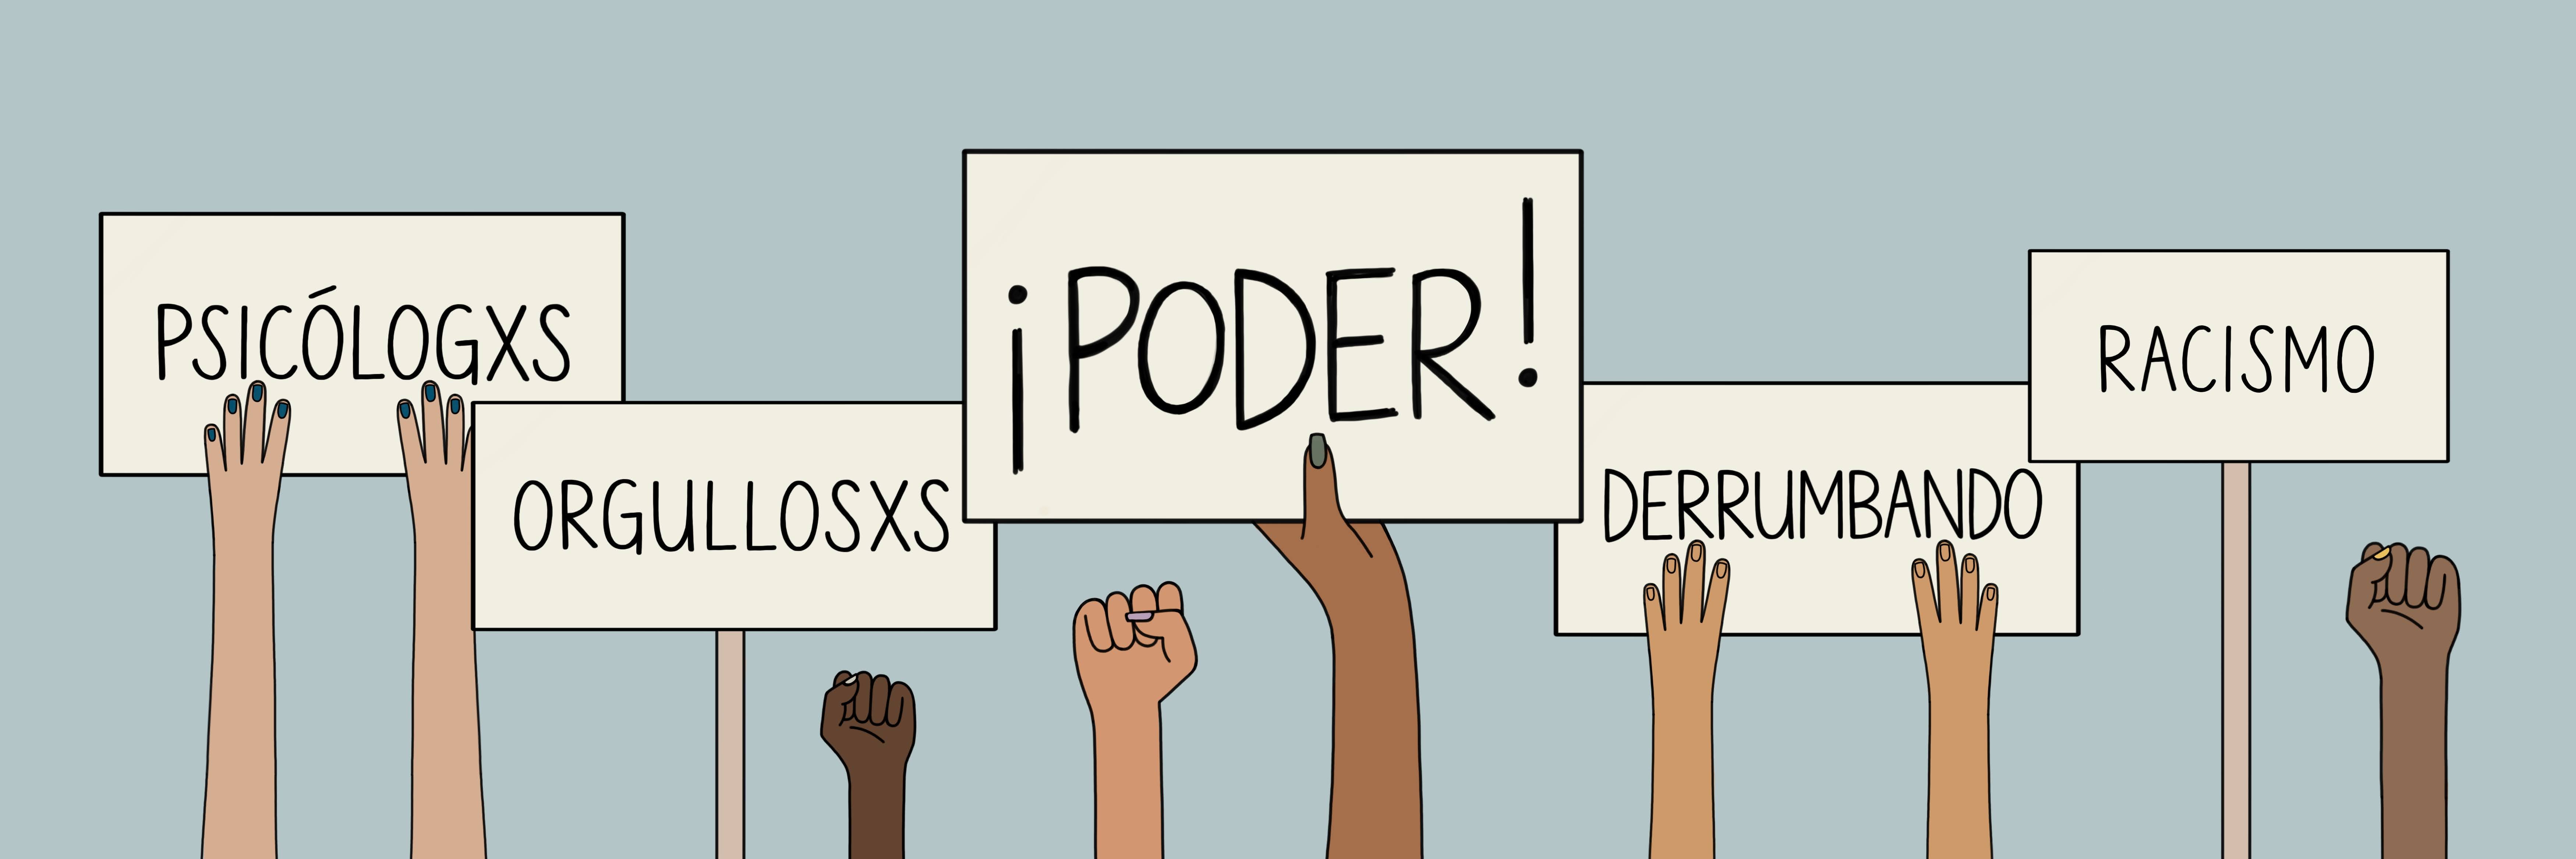 PSICÓLOGXS
ORGULLOSXS
¡PODER!
DERRUMBANDO
RACISMO